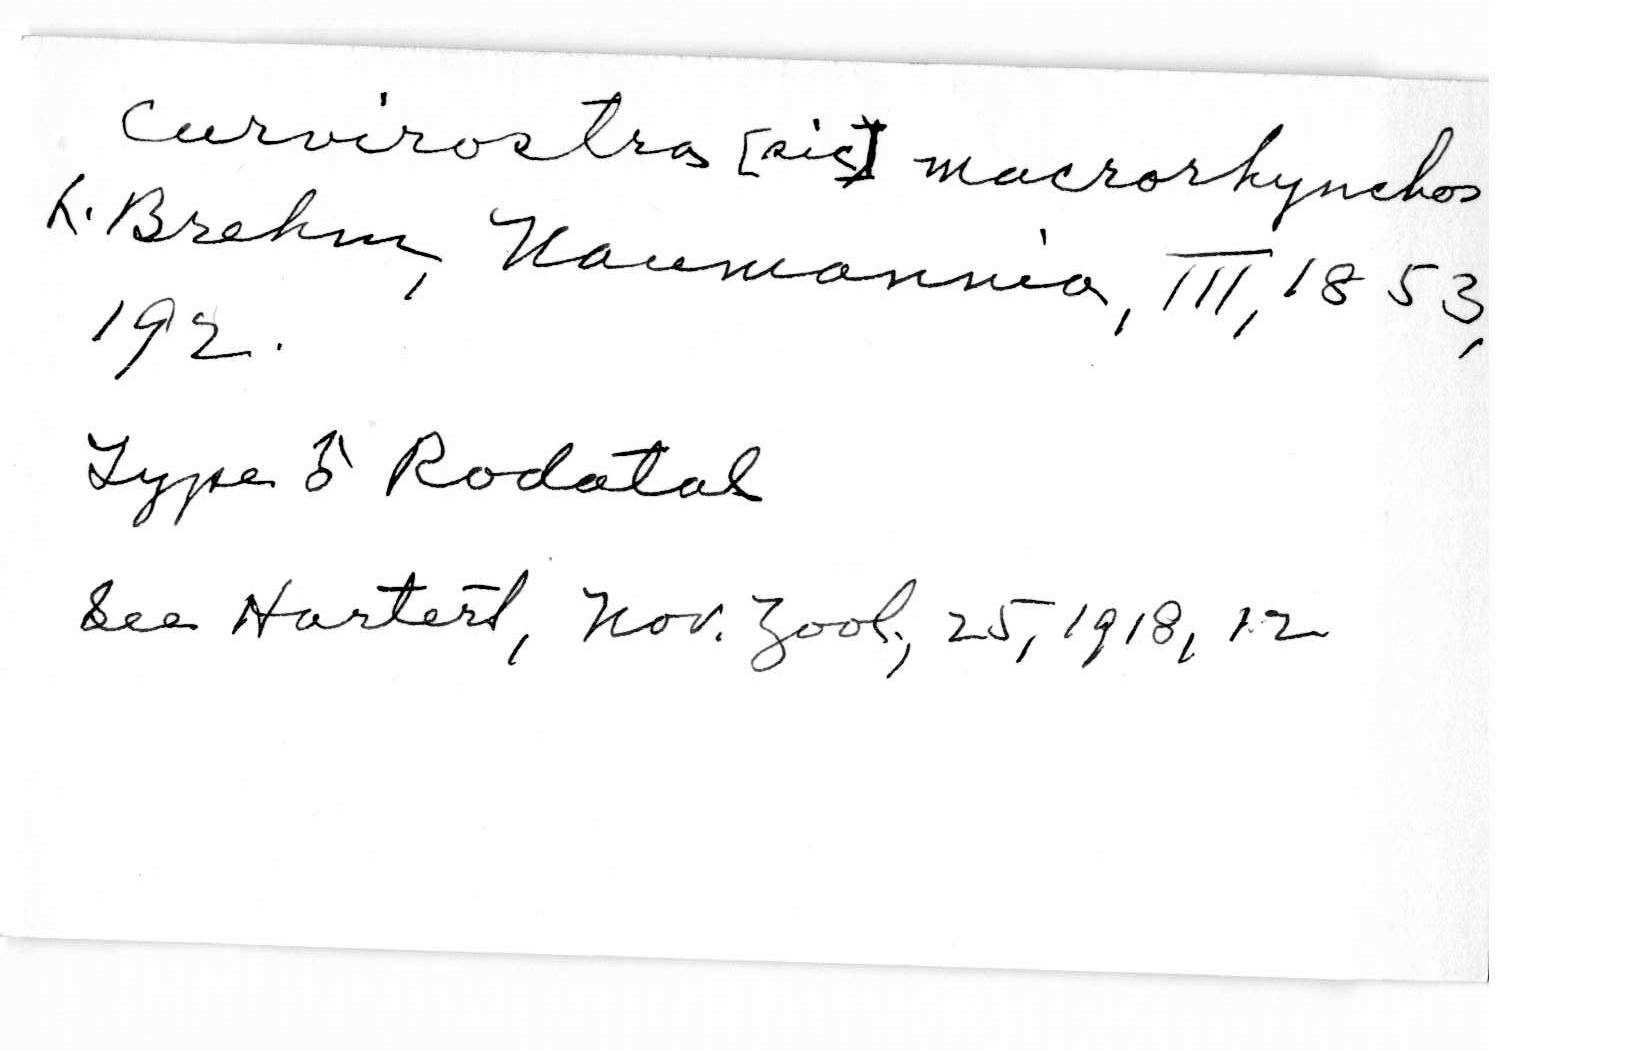 Curvirostra [sic] macrorhynchos
L. Brehm, Naumannia, III, 1853,
192.
Type ♂ Rodatal
See Hartert, Nov. Zool., 25, 1918, 12